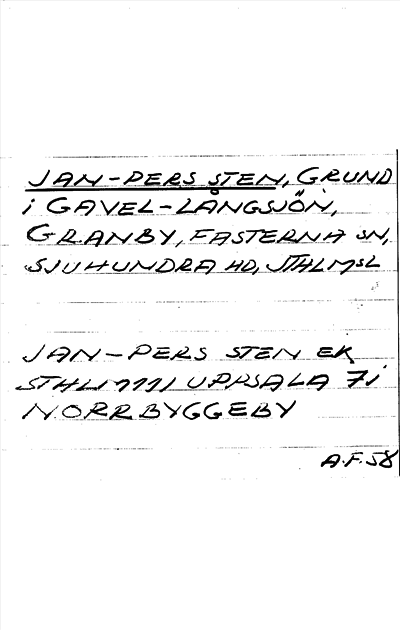 JAN-PERS STEN, GRUND
i GAVEL-LÅNGSJÖN,
GRANBY, FASTERNA SN,
SJUHUNDRA HD, STHLMSL
JAN-PERS STEN EK
UPPSALA 7i
NORRBYGGEBY
A.F.58